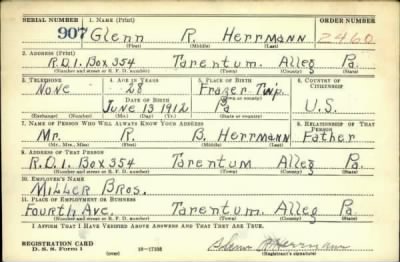 SERIAL NUMBER 1. NAME (Print) ORDER NUMBER
907 Glenn R. Herrmann 2460
(First) (Middle) (Last)
2. ADDRESS (Print)
R.D.1. Box 354 Tarentum. Alleg Pa.
(Number and street or R. F. D. number) (Town) (County) (State)
3. TELEPHONE 4. AGE IN YEARS 5. PLACE OF BIRTH 6. COUNTRY OF CITIZENSHIP
None 28 Frazer Twp.
DATE OF BIRTH (Town or county)
June 13 1912 Pa U.S.
(Exchange) (Number) (Mo.) (Day) (Yr.) (State or country)
7. NAME OF PERSON WHO WILL ALWAYS KNOW YOUR ADDRESS 8. RELATIONSHIP OF THAT PERSON
Mr. R. B. Herrmann Father
(Mr., Mrs., Miss) (First) (Middle) (Last)
9. ADDRESS OF THAT PERSON
R.D.1. Box 354 Tarentum Alleg Pa.
(Number and street or R. F. D. number) (Town) (County) (State)
10. EMPLOYER'S NAME
Miller Bros.
11. PLACE OF EMPLOYMENT OR BUSINESS
Fourth Ave. Tarentum. Alleg Pa.
(Number and street or R. F. D. number) (Town) (County) (State)
I AFFIRM THAT I HAVE VERIFIED ABOVE ANSWERS AND THAT THEY ARE TRUE.
REGISTRATION CARD
D. S. S. Form 1 (over) 16-17105 Glenn R Herrmann
(Registrant's signature)